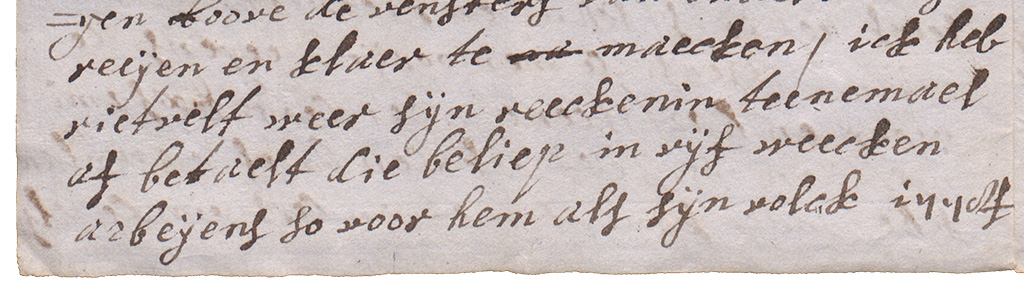 =gen boove de vensters van onder
reeijen en klaer te maecken, ick heb
rietvelt weer sijn reeckenin teenemael
af betaelt die beliep in vijf weecken
arbeijens so voor hem als sijn volck